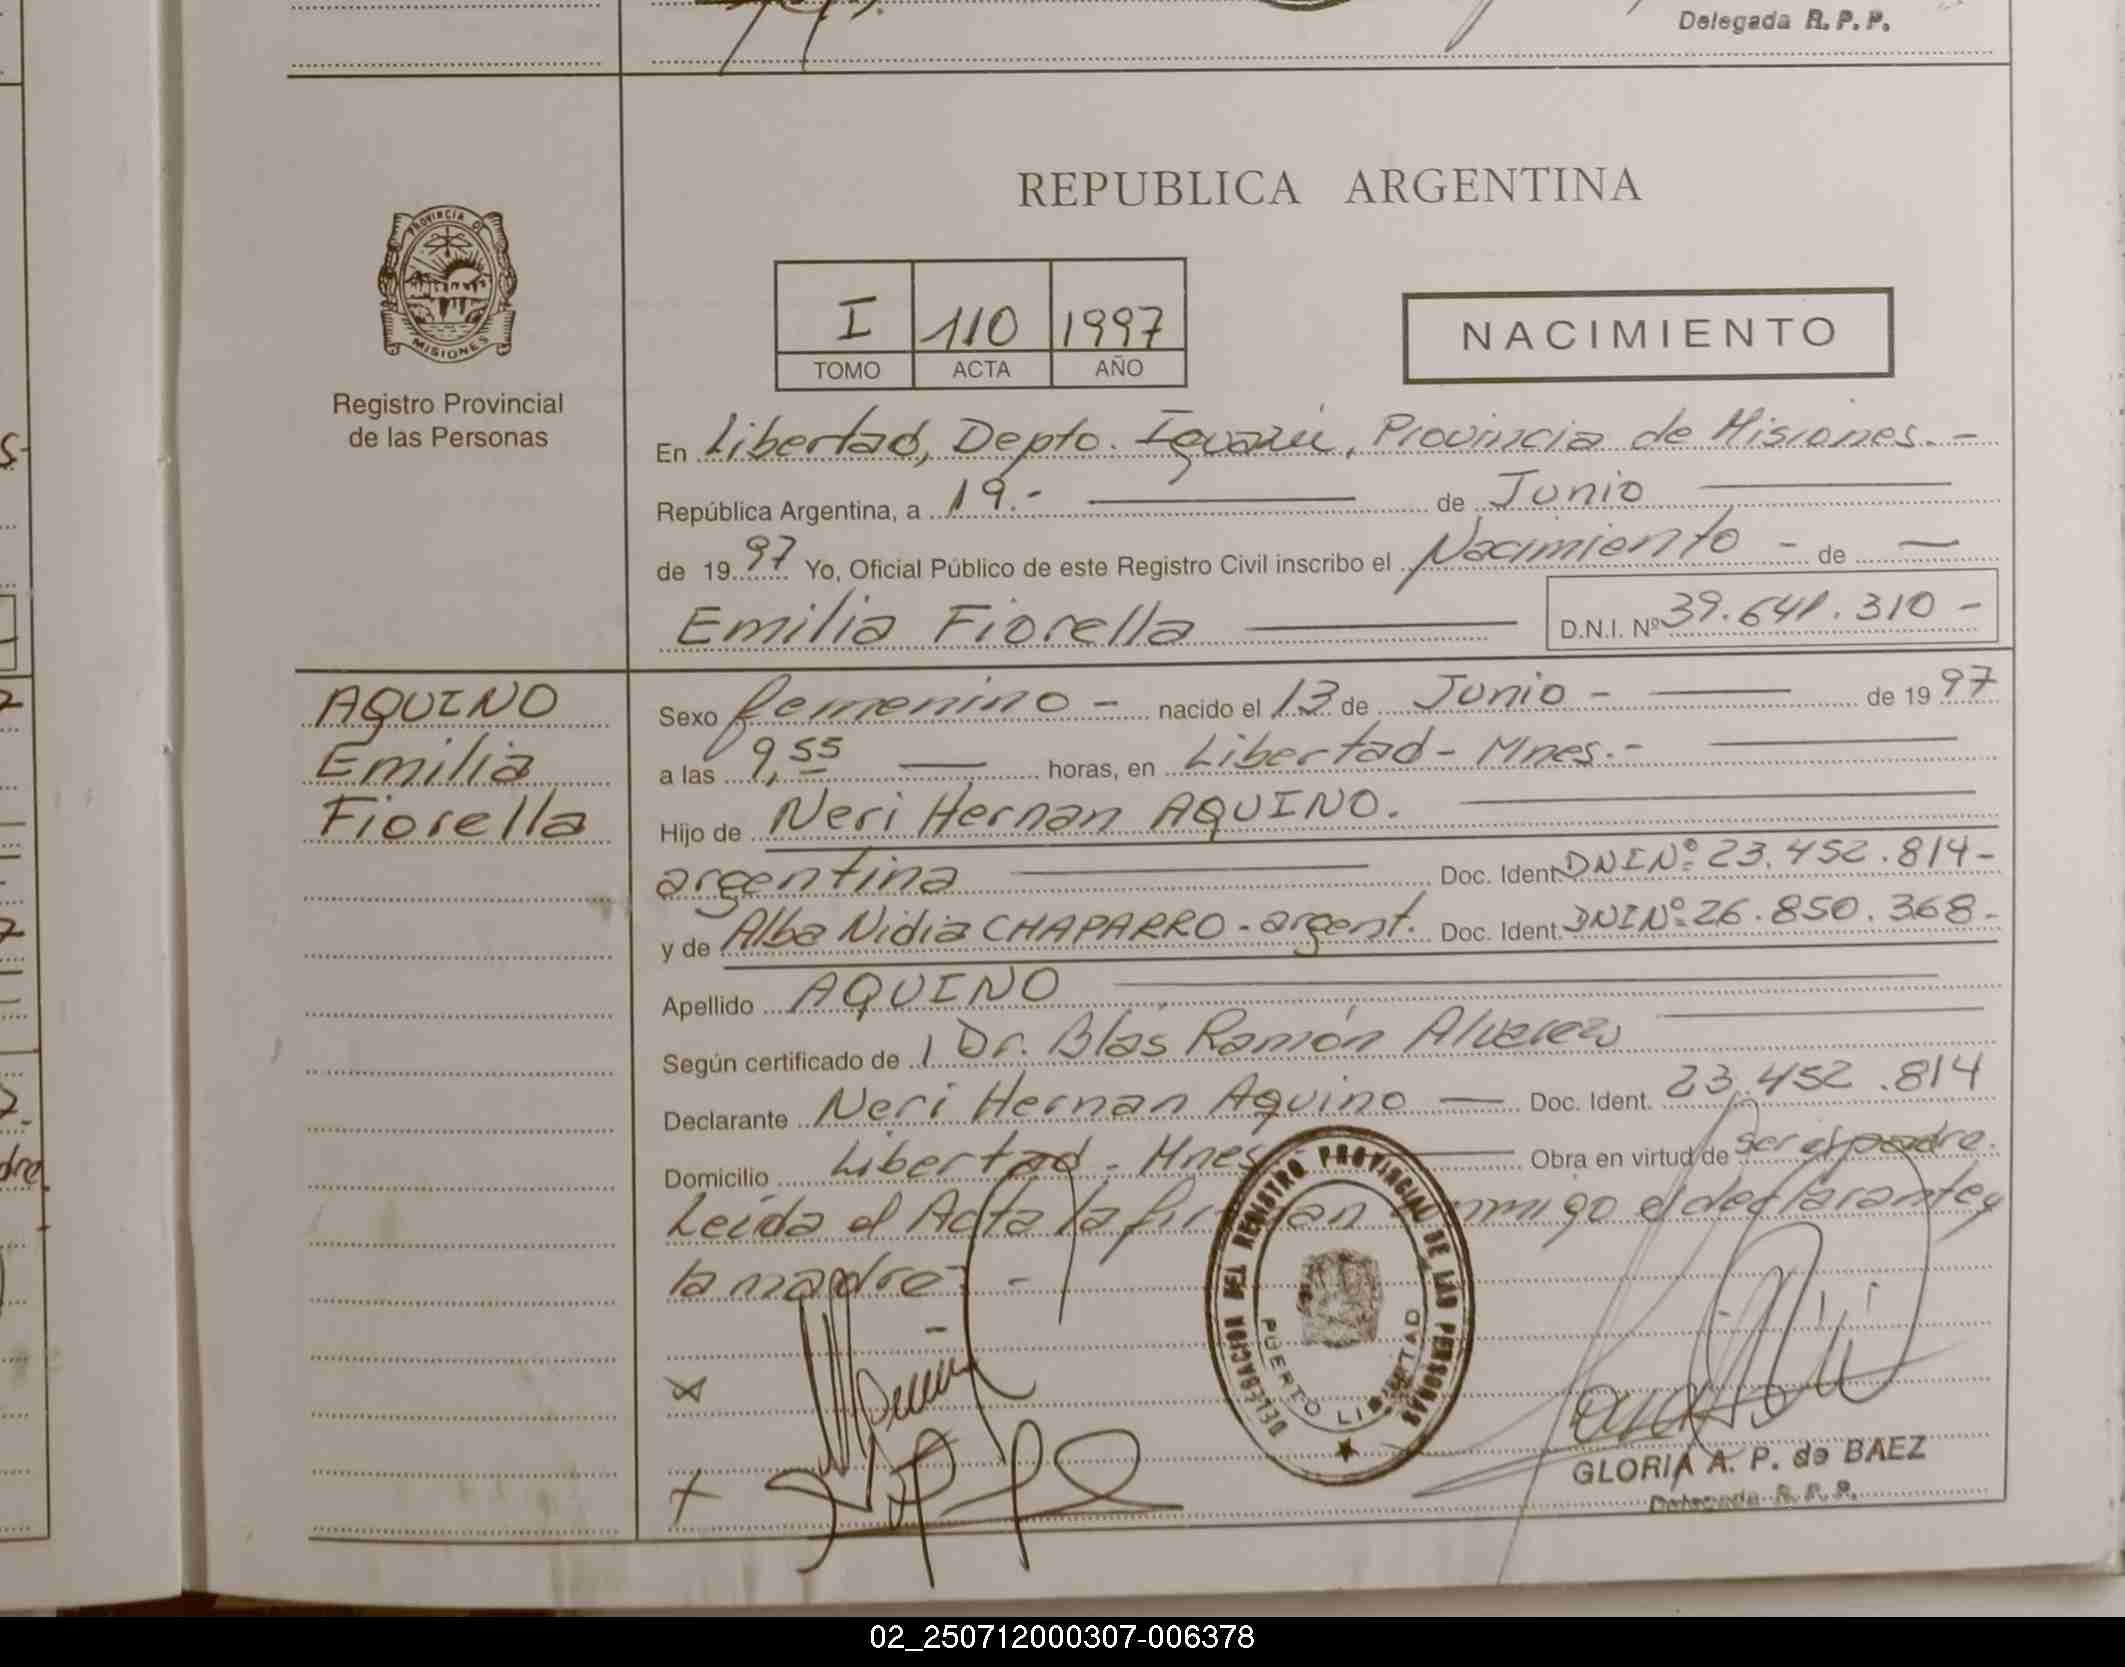 Delegada R.P.P.
REPUBLICA ARGENTINA
PROVINCIA DE
MISIONES
Registro Provincial
de las Personas
I 110 1997
TOMO ACTA AÑO
NACIMIENTO
En Libertad, Depto. Iguazú, Provincia de Misiones.-
República Argentina, a 19.- de Junio
de 1997 Yo, Oficial Público de este Registro Civil inscribo el Nacimiento - de
Emilia Fiorella D.N.I. Nº 39.641.310-
AQUINO
Emilia
Fiorella
Sexo femenino - nacido el 13 de Junio - de 1997
a las 9,55 horas, en Libertad - Mnes.-
Hijo de Neri Hernan AQUINO.
argentina Doc. Ident. DNI Nº: 23.452.814-
y de Alba Nidia CHAPARRO - argent. Doc. Ident. DNI Nº: 26.850.368-
Apellido AQUINO
Según certificado de Dr. Blas Ramón Alverez
Declarante Neri Hernan Aquino Doc. Ident. 23.452.814
Domicilio Libertad - Mnes Obra en virtud de ser el padre.
Leida el Acta la firman conmigo el declarante y
la madre -
DELEGACION DEL REGISTRO PROVINCIAL DE LAS PERSONAS
PUERTO LIBERTAD
GLORIA A. P. de BAEZ
Delegada R.P.P.
02_250712000307-006378